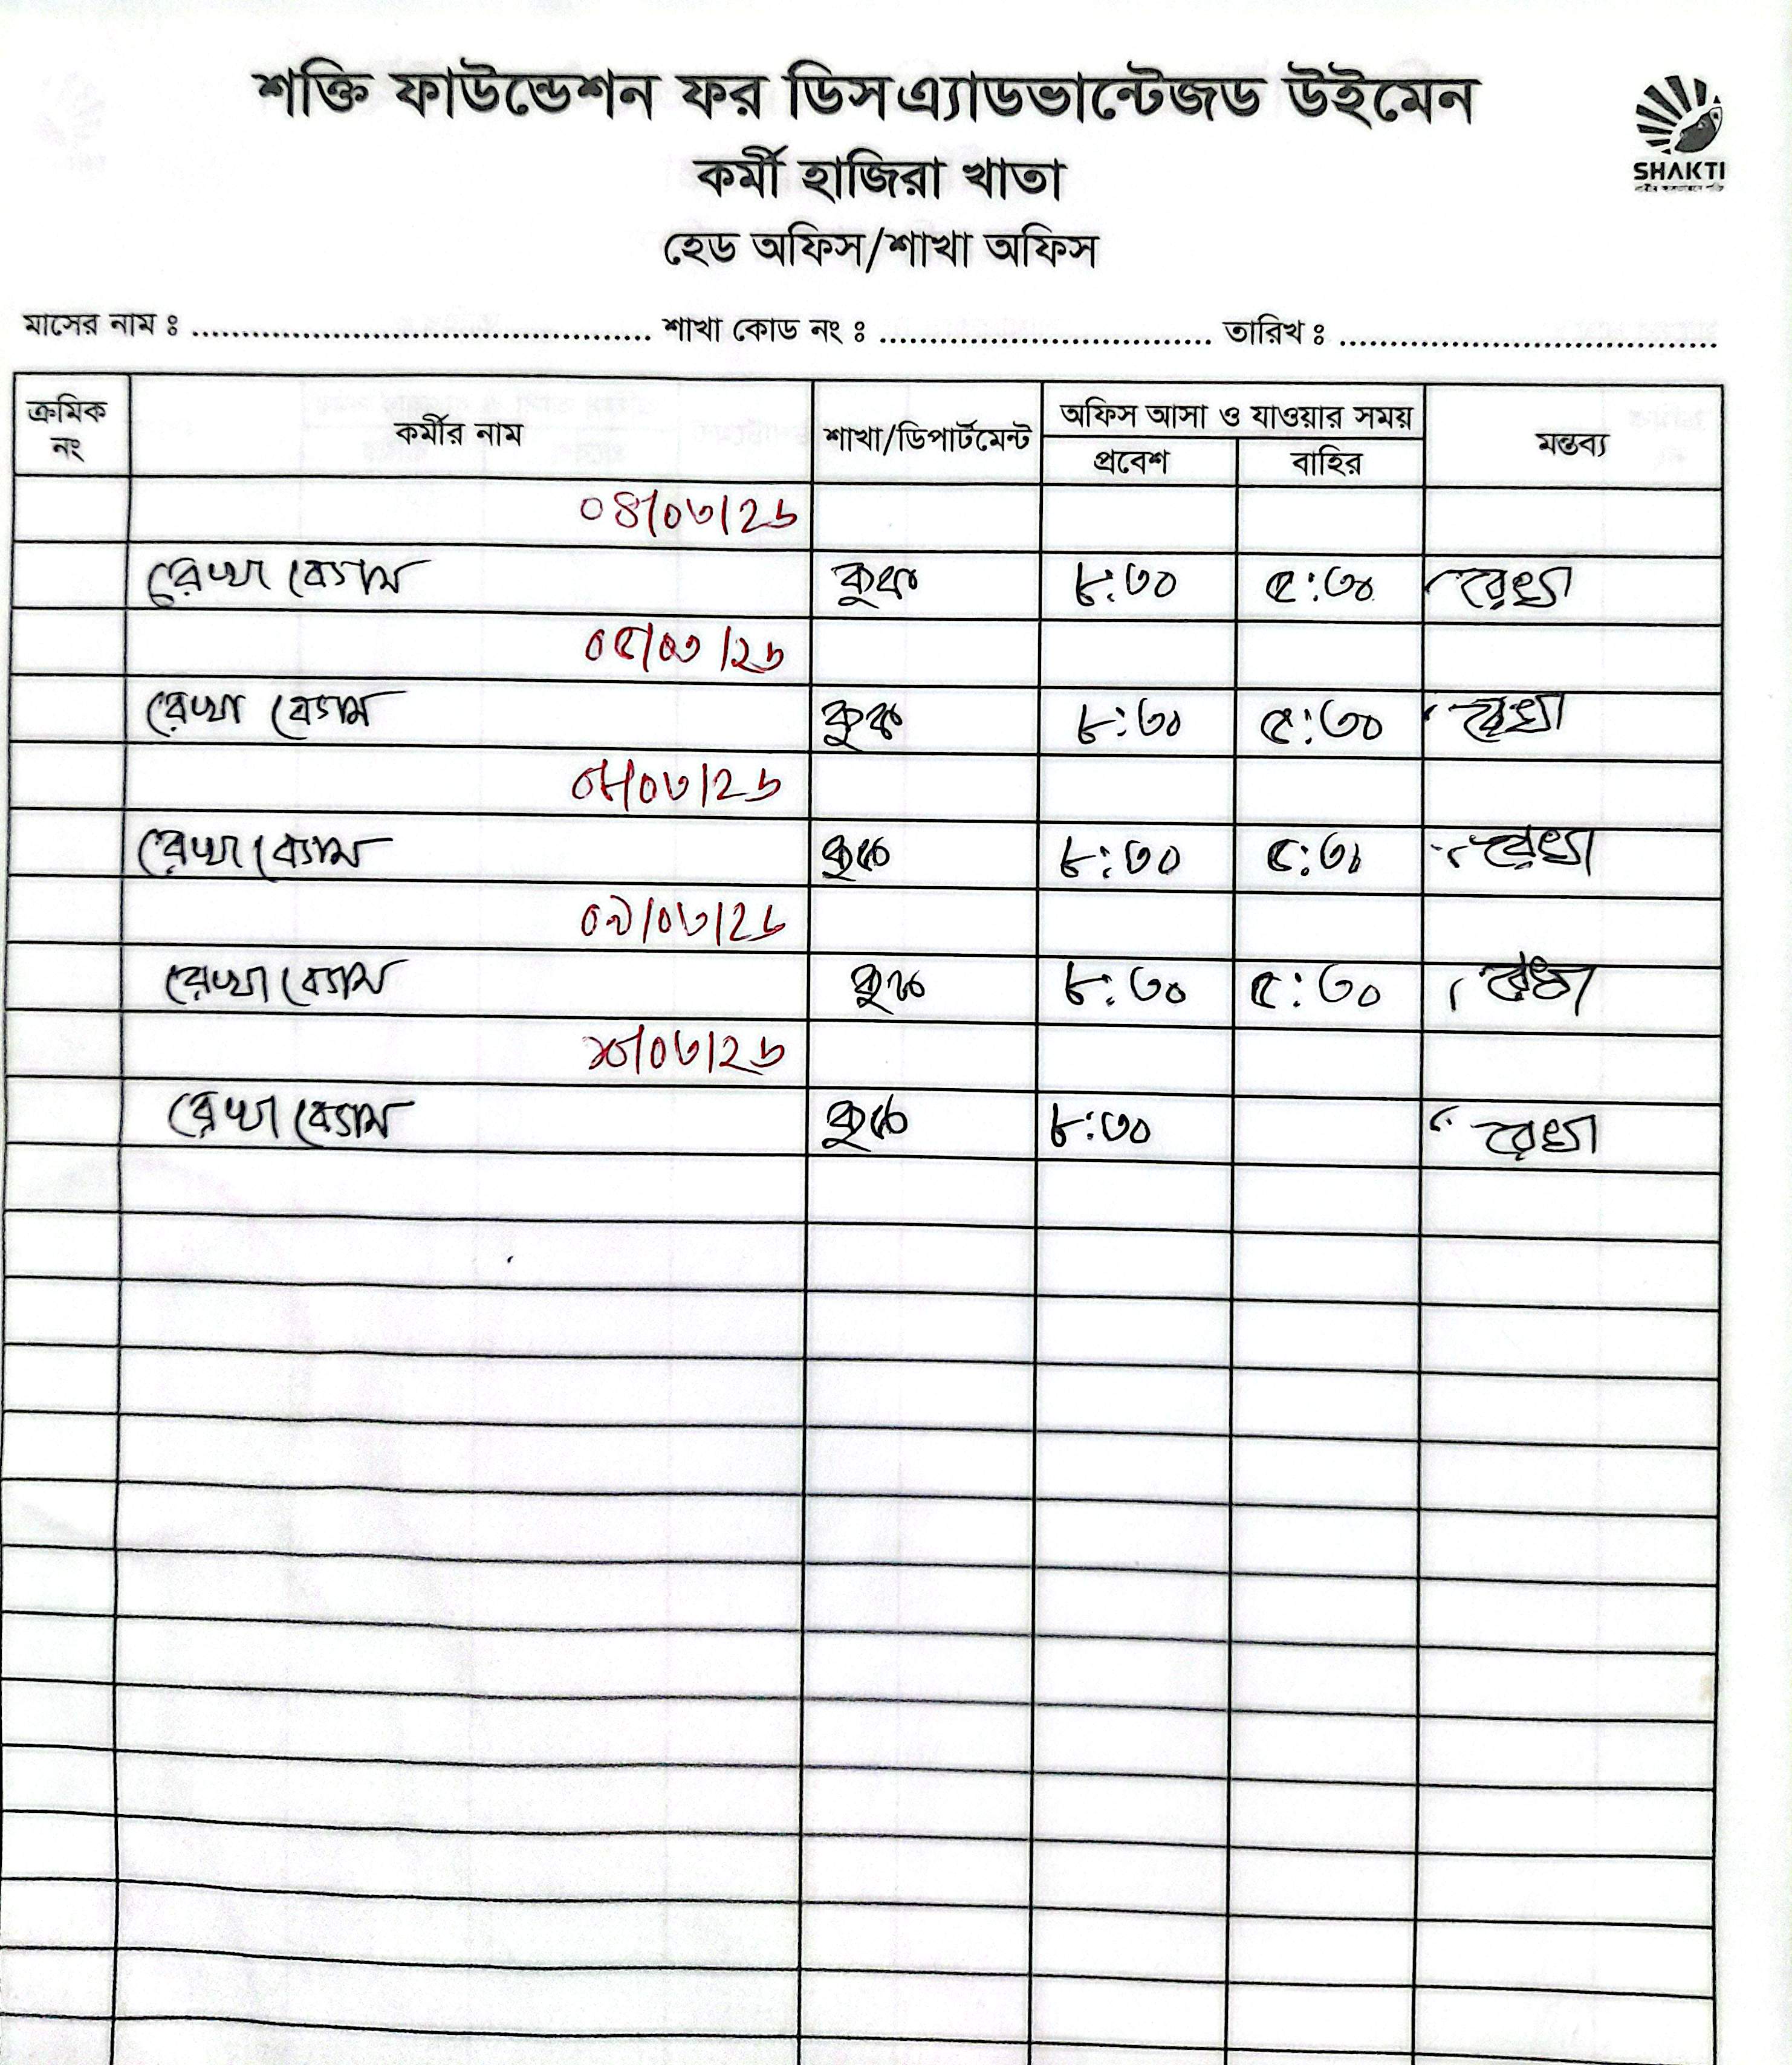 শক্তি ফাউন্ডেশন ফর ডিসএ্যাডভান্টেজড উইমেন
SHAKTI
কর্মী হাজিরা খাতা
হেড অফিস/শাখা অফিস
মাসের নাম ঃ শাখা কোড নং ঃ তারিখ ঃ
ক্রমিক নং কর্মীর নাম শাখা/ডিপার্টমেন্ট অফিস আসা ও যাওয়ার সময় মন্তব্য
প্রবেশ বাহির
০৪/০৩/২৬
রেখা বেগাম কুক ৮:৩০ ৫:৩০ রেখা
০৫/০৩/২৬
রেখা বেগাম কুক ৮:৩০ ৫:৩০ রেখা
০৮/০৩/২৬
রেখা বেগাম কুক ৮:৩০ ৫:৩০ রেখা
০৯/০৩/২৬
রেখা বেগাম কুক ৮:৩০ ৫:৩০ রেখা
১০/০৩/২৬
রেখা বেগাম কুক ৮:৩০ রেখা